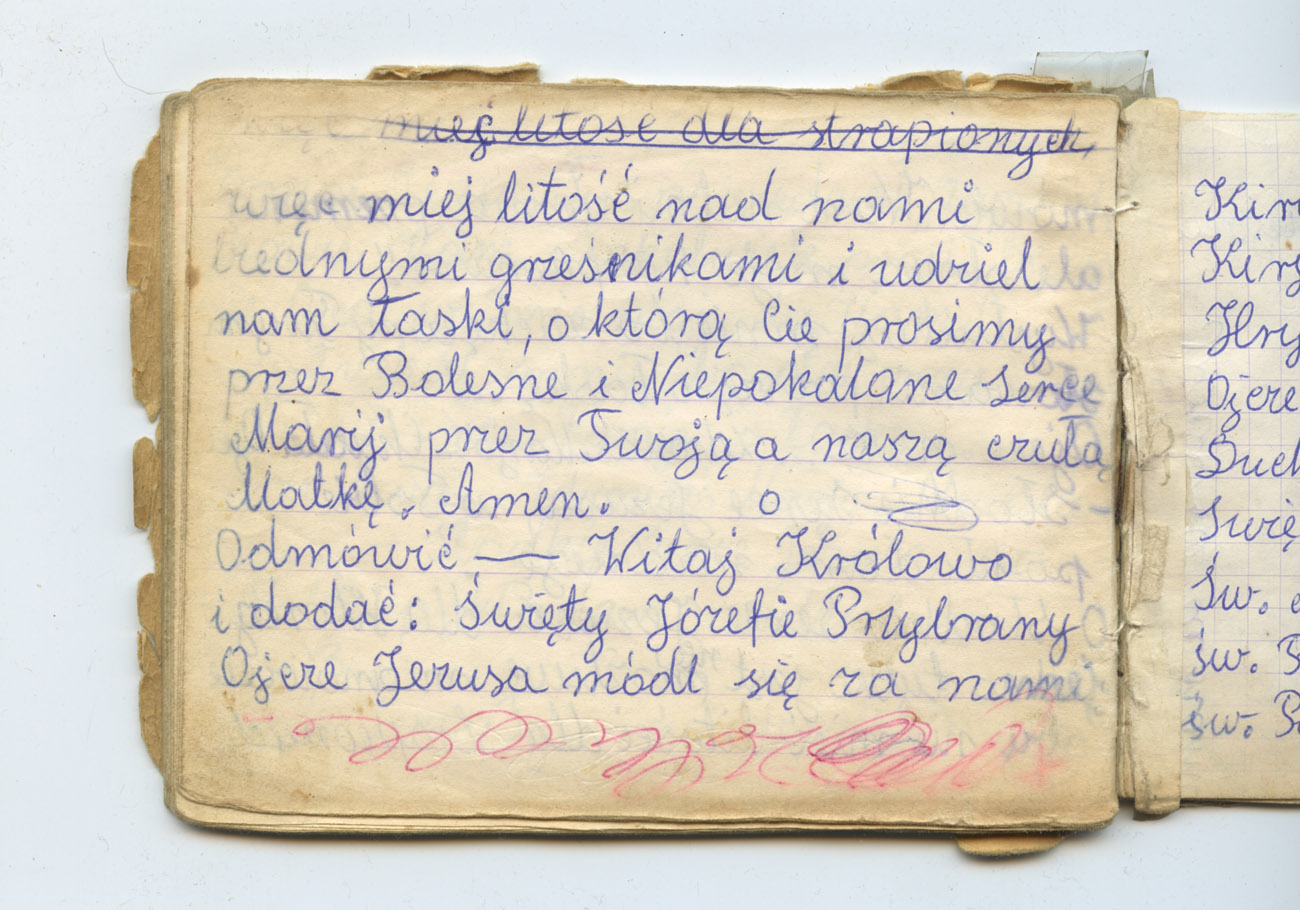 więc miej litość dla strapionych,
więc miej litość nad nami
biednymi grześnikami i udziel
nam łaski, o którą Cie prosimy
przez Bolesne i Niepokalane serce
Marij przez Twoją a naszą czułą
Matkę. Amen. o
Odmówić — Witaj Królowo
i dodać: Święty Józefie Przybrany
Ojcze Jezusa módl się za nami
Ojcze
św.
św.